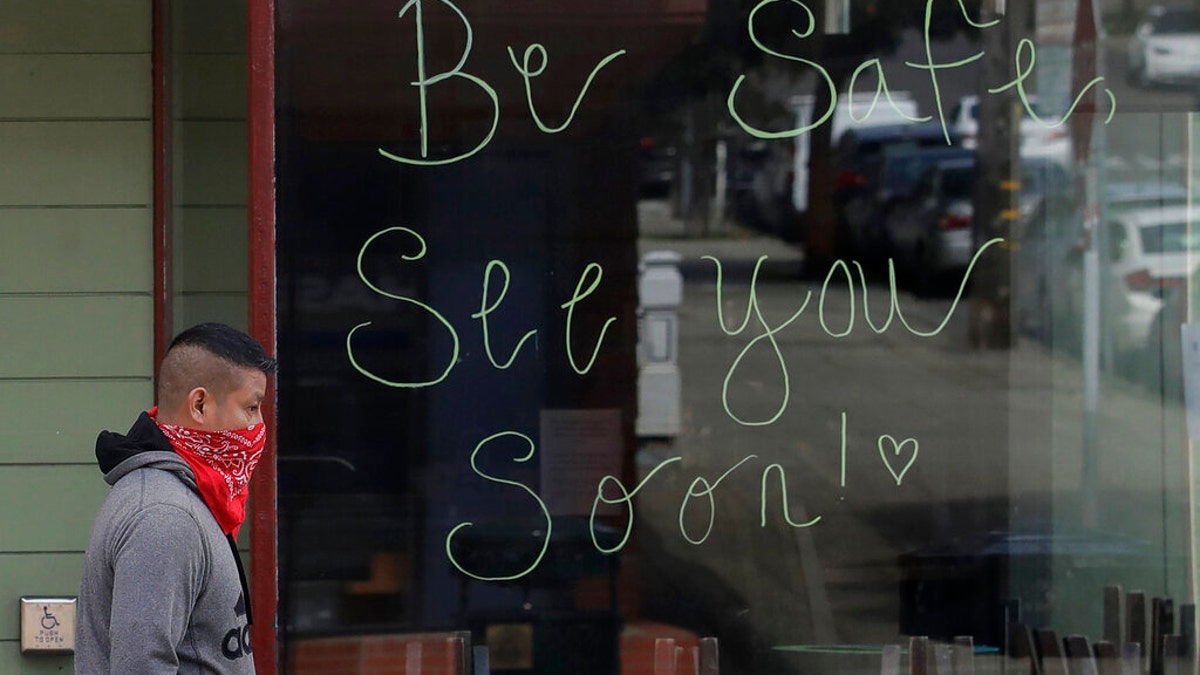 Be Safe,
See you
Soon! ♡
PUSH
TO OPEN
ad